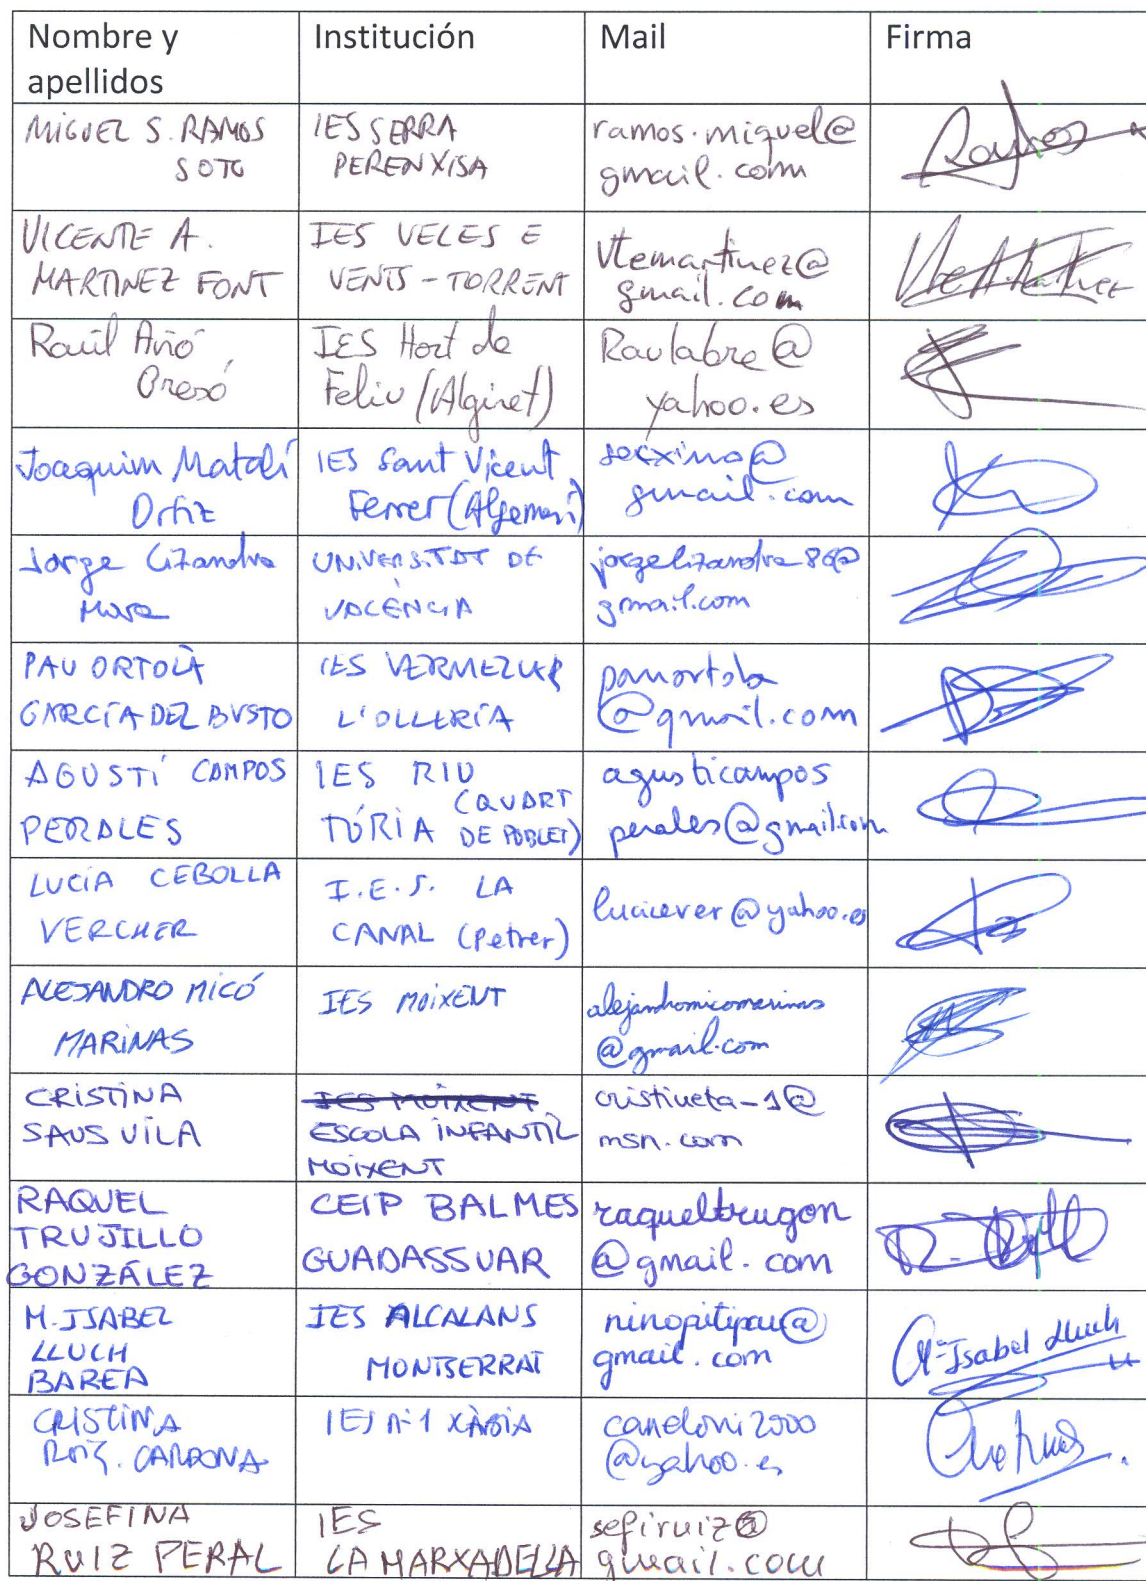 Nombre y apellidos
Institución
Mail
Firma
MIGUEL S. RAMOS
SOTO
IES SERRA
PERENXISA
ramos.miquel@
gmail.com
Ramos
VICENTE A.
MARTINEZ FONT
IES VELES E
VENTS - TORRENT
Vtemartinez@
gmail.com
Raúl Añó
IES Hort de
Feliu (Alginet)
Raulabre@
yahoo.es
Joaquim Matalí
Ortiz
IES Sant Vicent
Ferrer (Algemesí)
gmail.com
Jorge Lizandra
Mora
UNIVERSITAT DE
VALÈNCIA
jorgelizandra86@
gmail.com
PAU ORTOLÀ
GARCÍA DEL BUSTO
IES VERMELLAR
L'OLLERÍA
pauortola
@gmail.com
AGUSTÍ CAMPOS
PERALES
IES RIU
TÚRIA (QUART
DE POBLET)
agusticampos
perales@gmail.com
LUCIA CEBOLLA
VERCHER
I.E.S. LA
CANAL (Petrer)
luciever@yahoo.es
ALEJANDRO MICÓ
MARINAS
IES MOIXENT
alejandromicomarinas
@gmail.com
CRISTINA
SAUS VILA
IES MOIXENT
ESCOLA INFANTIL
MOIXENT
cristineta-1@
msn.com
RAQUEL
TRUJILLO
GONZÁLEZ
CEIP BALMES
GUADASSUAR
raqueltrugon
@gmail.com
M. ISABEL
LLUCH
BAREA
IES ALCALANS
MONTSERRAT
ninopitipau@
gmail.com
Mª Isabel Lluch
CRISTINA
CARDONA
IES nº1 XÀBIA
caneloni2000
@yahoo.es
JOSEFINA
RUIZ PERAL
IES
LA MARXADELLA
sefiruiz@
gmail.com